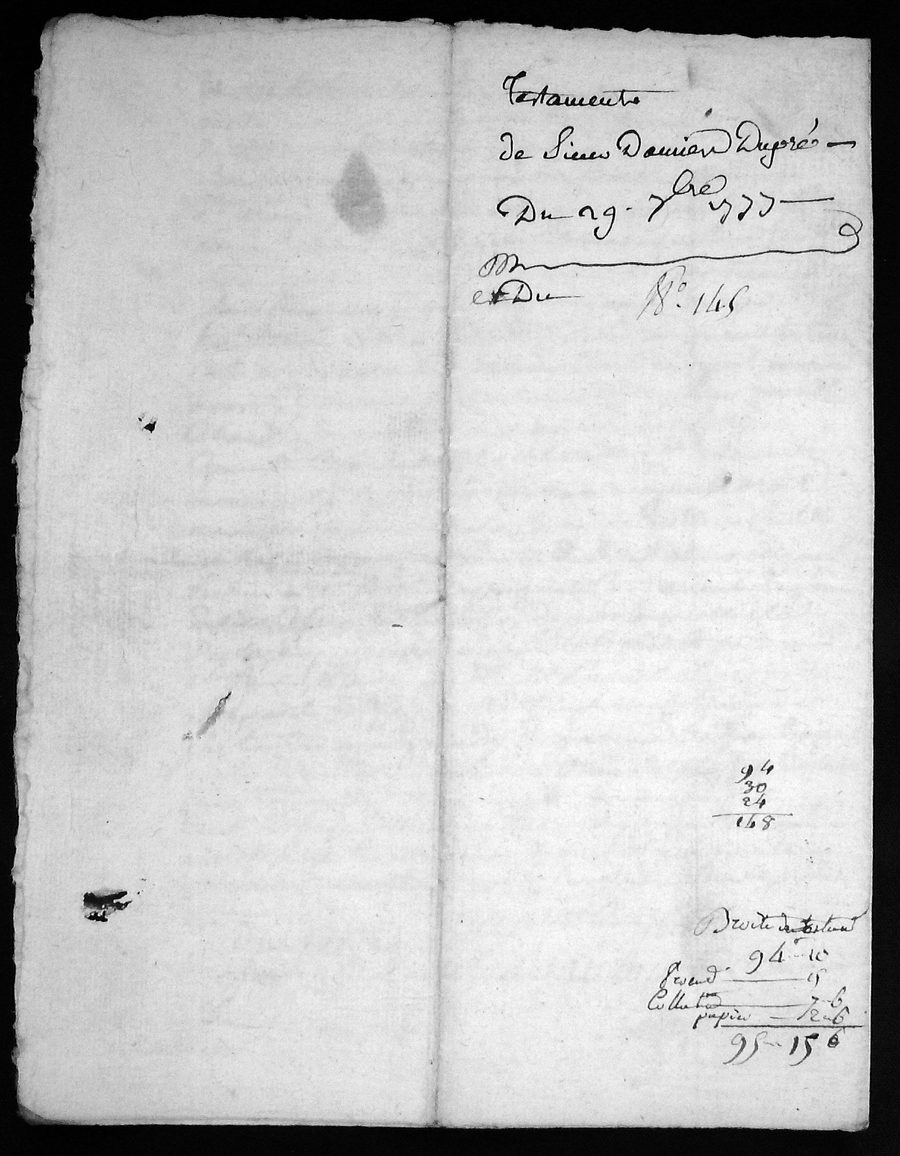 Testament
de Sieur Damien Dupré
Du 29. 7bre 1777
Du
No. 145
94
30
24
148
Droits de
94 10
5
Collation 7 6
papier 12 6
95 15 6